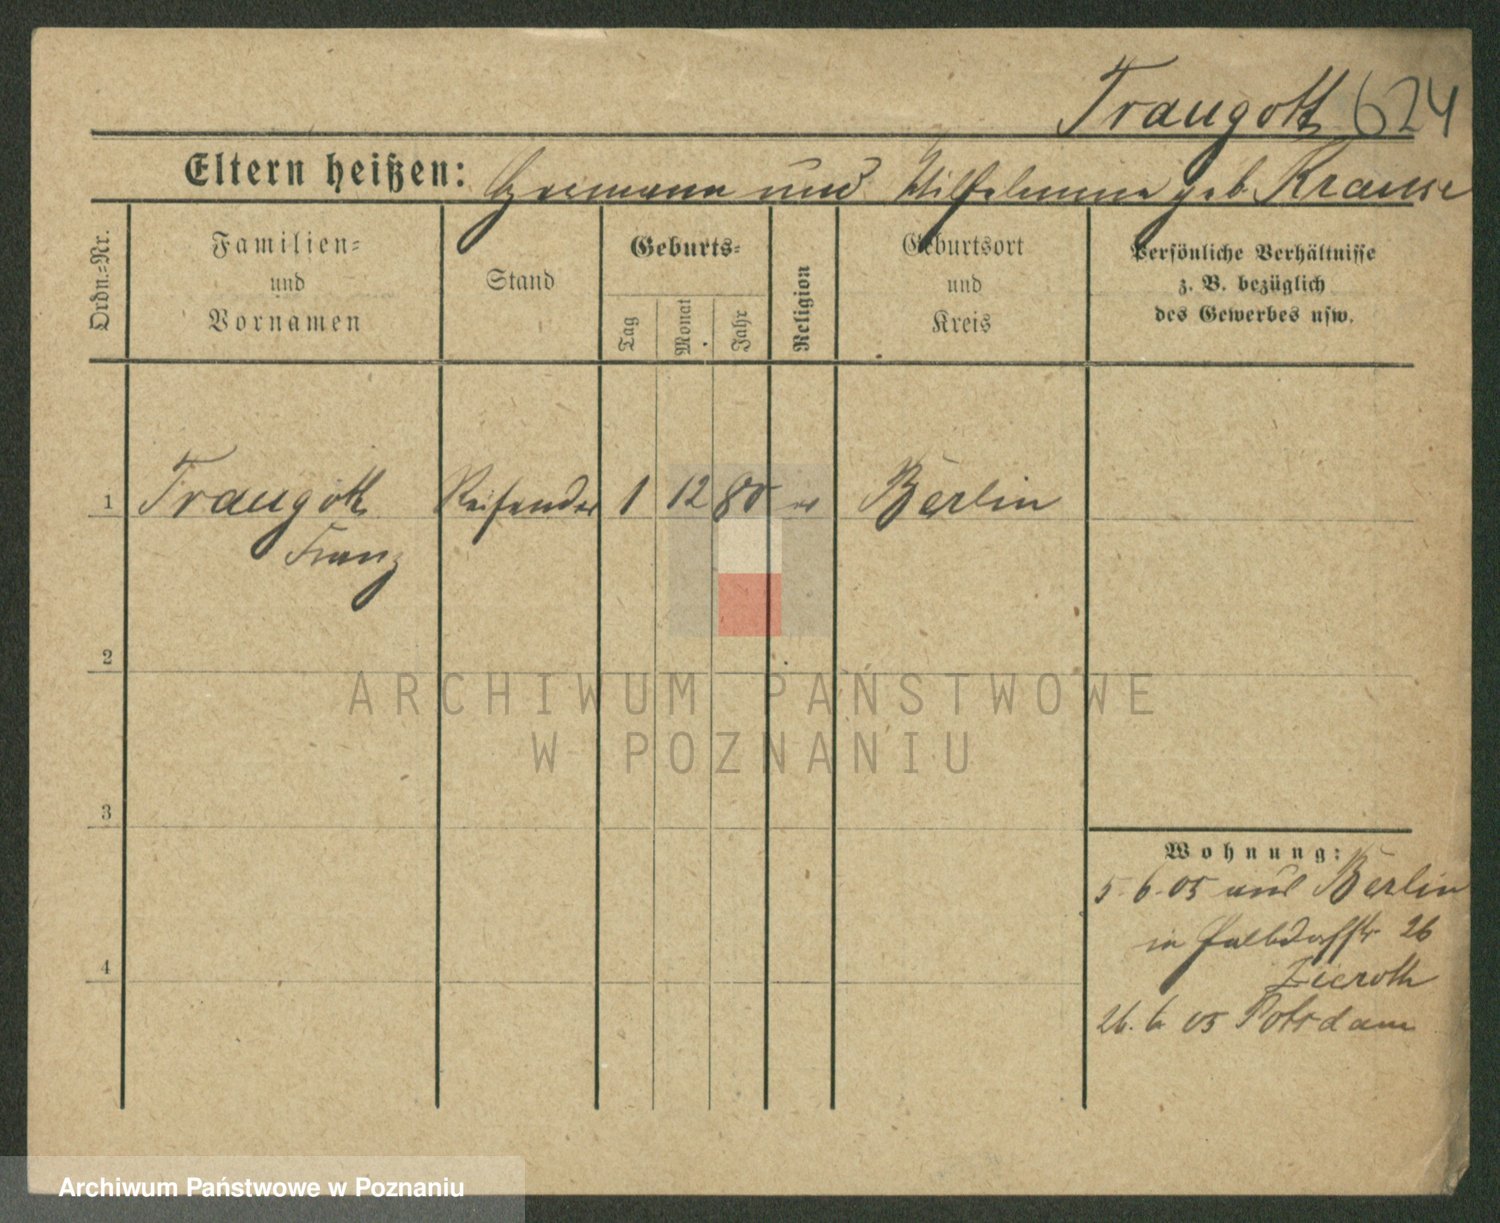 Traugott 624
Eltern heißen: Hermann und Wilhelmine geb. Krause
Ordn.=Nr.
Familien=
und
Vornamen
Stand
Geburts=
Tag
Monat
Jahr
Religion
Geburtsort
und
Kreis
Persönliche Verhältnisse
z. B. bezüglich
des Gewerbes usw.
1 Traugott Reisender 1 12 80 ev Berlin
Franz
2
3
4
Wohnung:
5. 6. 05 aus Berlin
in 26
Zieroth
26. 6 05 Potsdam
ARCHIWUM PAŃSTWOWE
W POZNANIU
Archiwum Państwowe w Poznaniu